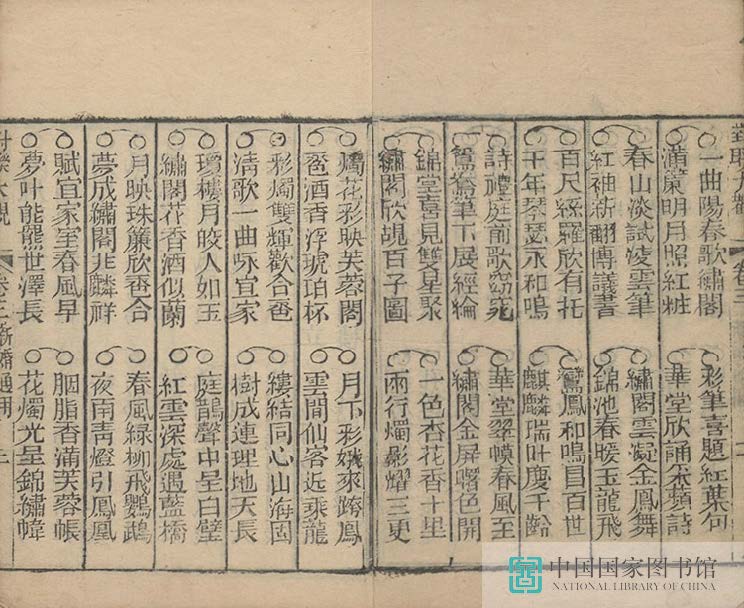 卷三
一曲陽春歌繡閣
滿簾明月照紅粧
春山淡試凌雲筆
紅袖新翻博議書
百尺絲羅欣有托
千年琴瑟永和鳴
詩禮庭前歌窈窕
鴛鴦筆下展經綸
錦堂喜見雙星聚
繡閣欣覘百子圖
彩筆喜題紅葉句
華堂欣誦采蘋詩
繡閣雲凝金鳳舞
錦池春暖玉龍飛
鸞鳳和鳴昌百世
麒麟瑞叶慶千齡
華堂翠幙春風至
繡閣金屏曙色開
一色杏花香十里
兩行燭影耀三更
燭花彩映芙蓉閣
巹酒香浮琥珀杯
彩燭雙輝歡合巹
清歌一曲咏宜家
瓊樓月皎人如玉
繡閣花香酒似蘭
月映珠簾欣巹合
夢成繡閣兆麟祥
賦宜家室春風早
夢叶能羆世澤長
月下彩娥來跨鳳
雲間仙客近乘龍
縷結同心山海固
樹成連理地天長
庭鵲聲中呈白璧
紅雲深處遇藍橋
春風綠柳飛鸚鵡
夜雨青燈引鳳凰
胭脂香滿芙蓉帳
花燭光呈錦繡幃
中国国家图书馆
NATIONAL LIBRARY OF CHINA